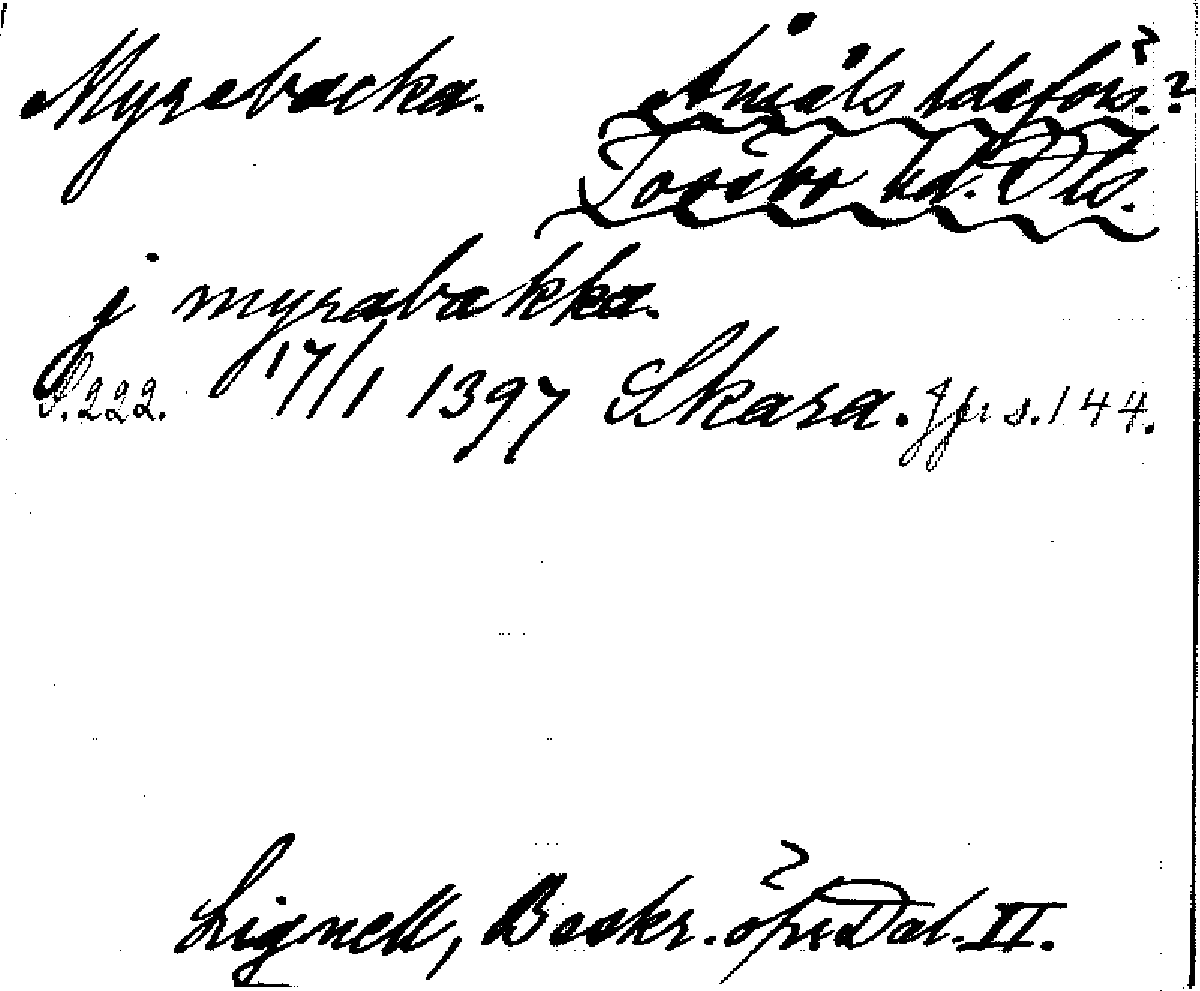 Myrebacka. Åmåls ldsförs.?
Tössbo hd. Dls.
j myrabakka.
S. 222. 17/1 1397 Skara. Jfr s. 144.
Lignell, Beskr. öfr Dal. II.